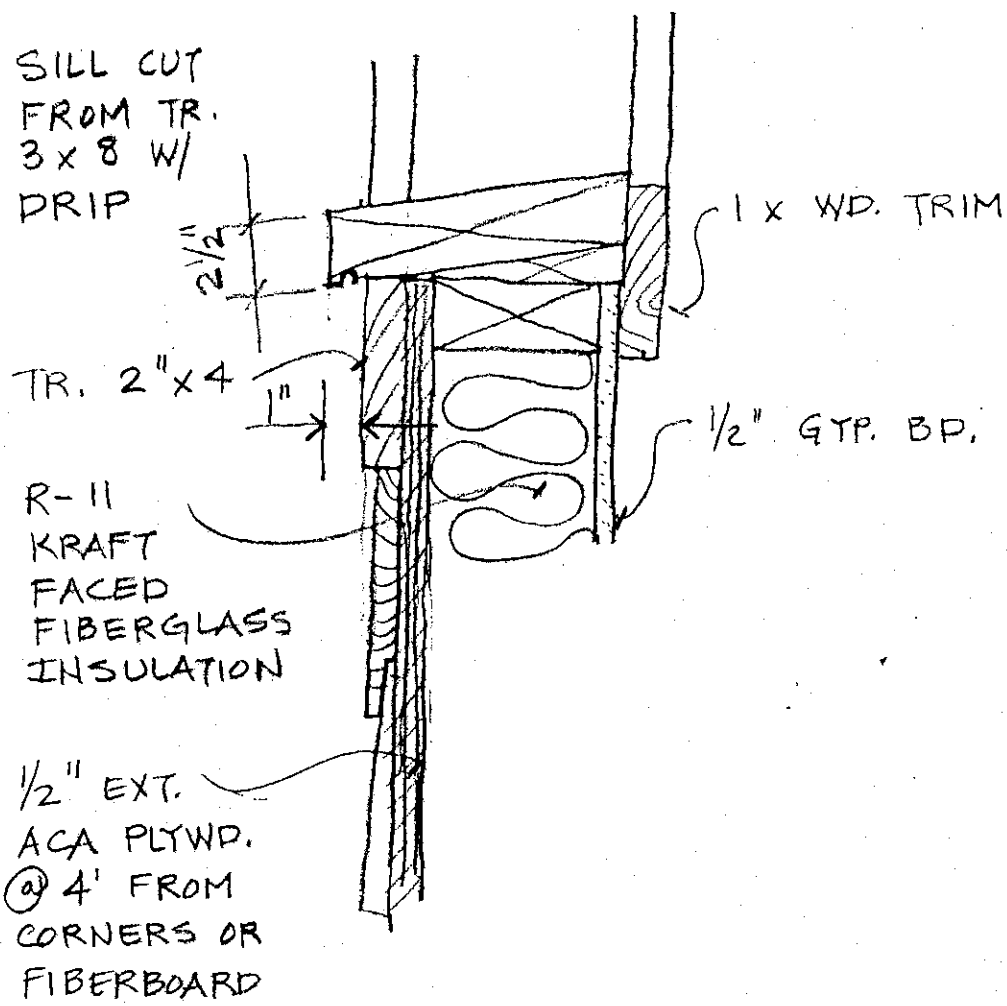 SILL CUT
FROM TR.
3 x 8 W/
DRIP
2 1/2"
1 x WD. TRIM
TR. 2"x4
1"
1/2" GYP. BD.
R-11
KRAFT
FACED
FIBERGLASS
INSULATION
1/2" EXT.
ACA PLYWD.
@ 4' FROM
CORNERS OR
FIBERBOARD